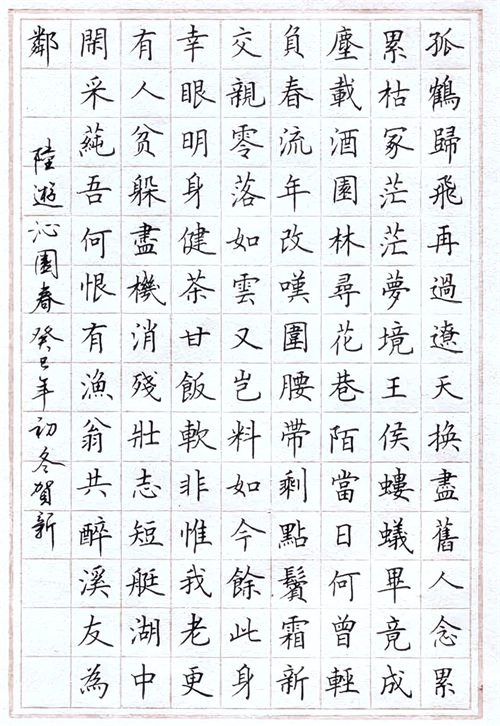 孤鶴歸飛再過遼天換盡舊人念累
累枯冢茫茫夢境王侯螻蟻畢竟成
塵載酒園林尋花巷陌當日何曾輕
負春流年改嘆圍腰帶剩點鬢霜新
交親零落如雲又豈料如今餘此身
幸眼明身健茶甘飯軟非惟我老更
有人貧躲盡機消殘壯志短艇湖中
閑采蒓吾何恨有漁翁共醉溪友為
鄰
陸遊沁園春癸巳年初冬賀新